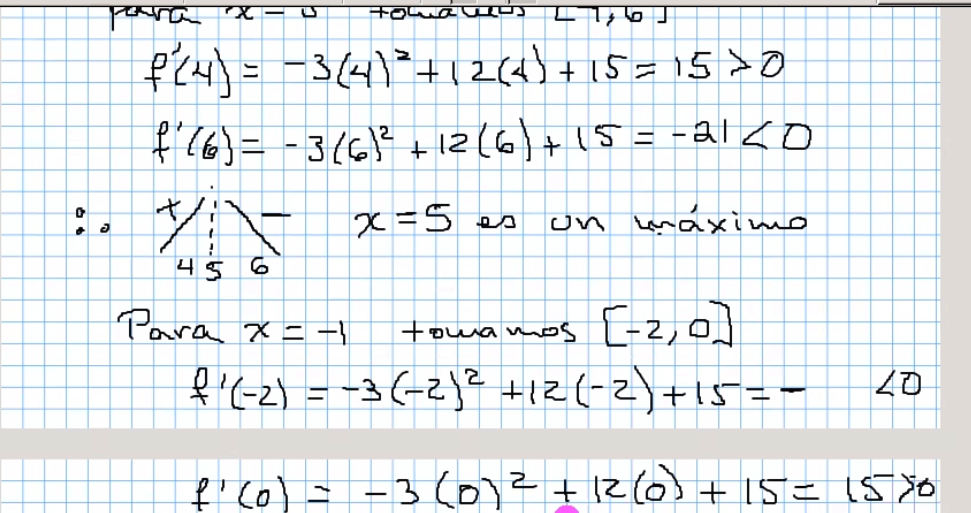 para x = 5 tomamos [4,6]
f'(4) = -3(4)² + 12(4) + 15 = 15 > 0
f'(6) = -3(6)² + 12(6) + 15 = -21 < 0
∴ + - x = 5 es un máximo
4 5 6
Para x = -1 tomamos [-2, 0]
f'(-2) = -3(-2)² + 12(-2) + 15 = - < 0
f'(0) = -3(0)² + 12(0) + 15 = 15 > 0